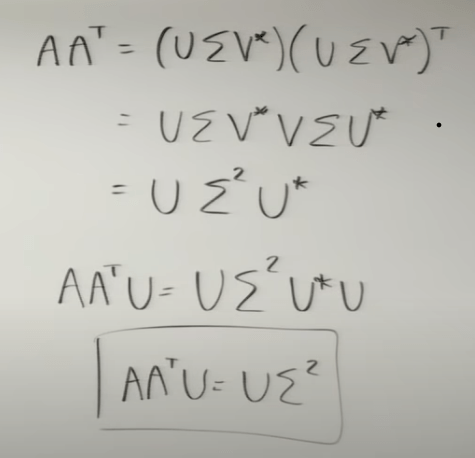 AAᵀ = (UΣV*)(UΣV*)ᵀ
= UΣV*VΣU*
= UΣ²U*
AAᵀU = UΣ²U*U
AAᵀU = UΣ²